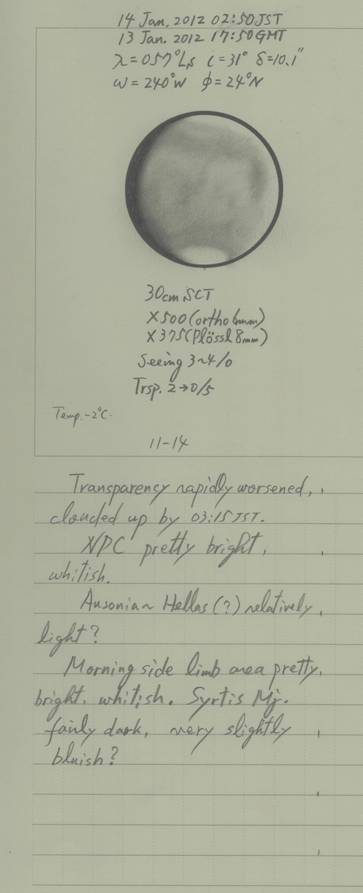 14 Jan, 2012 02:50 JST
13 Jan. 2012 17:50 GMT
λ=057°Ls ι=31° δ=10.1"
ω=240°W φ=24°N
30cm SCT
×500(ortho 6mm)
×375(Plössl 8mm)
Seeing 3~4/0
Trsp. 2→0/5
Temp.-2°C.
11-14
Transparency rapidly worsened,
clouded up by 03:15 JST.
NPC pretty bright,
whitish.
Ausonia~Hellas(?) relatively
light?
Morning side limb area pretty
bright, whitish. Syrtis Mj.
fairly dark, very slightly
bluish?